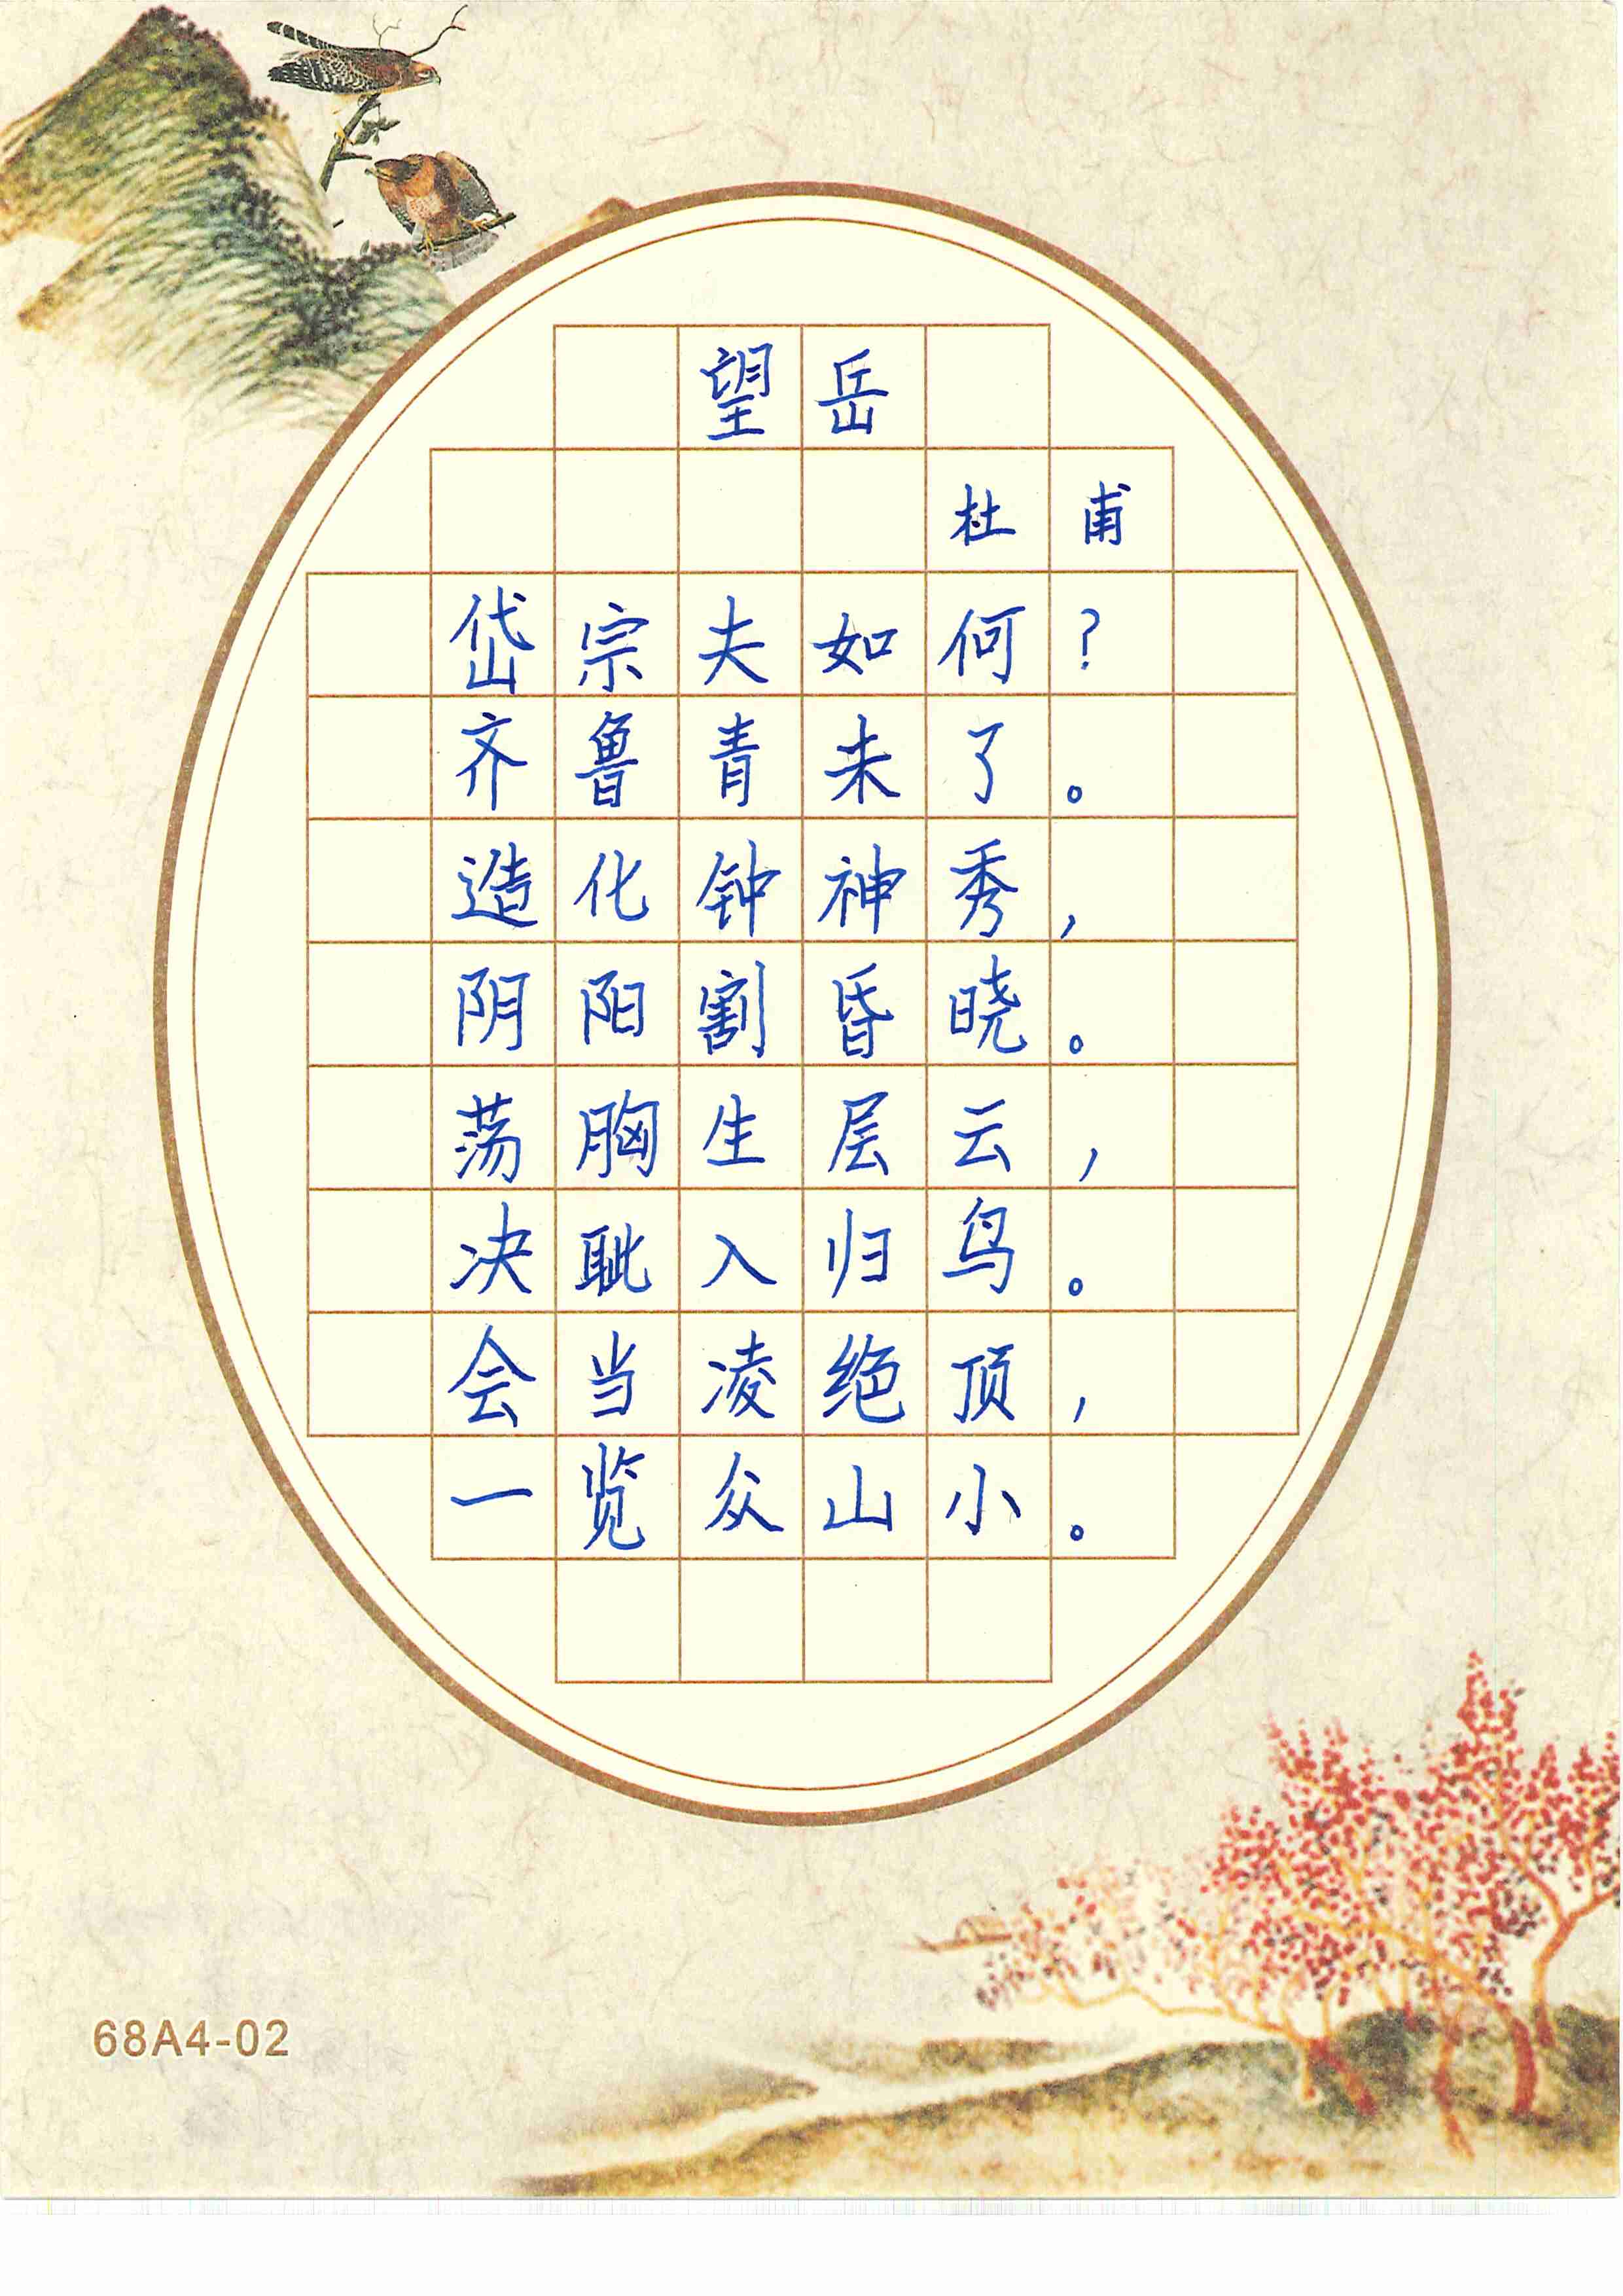 望岳
杜甫
岱宗夫如何？
齐鲁青未了。
造化钟神秀，
阴阳割昏晓。
荡胸生层云，
决眦入归鸟。
会当凌绝顶，
一览众山小。
68A4-02